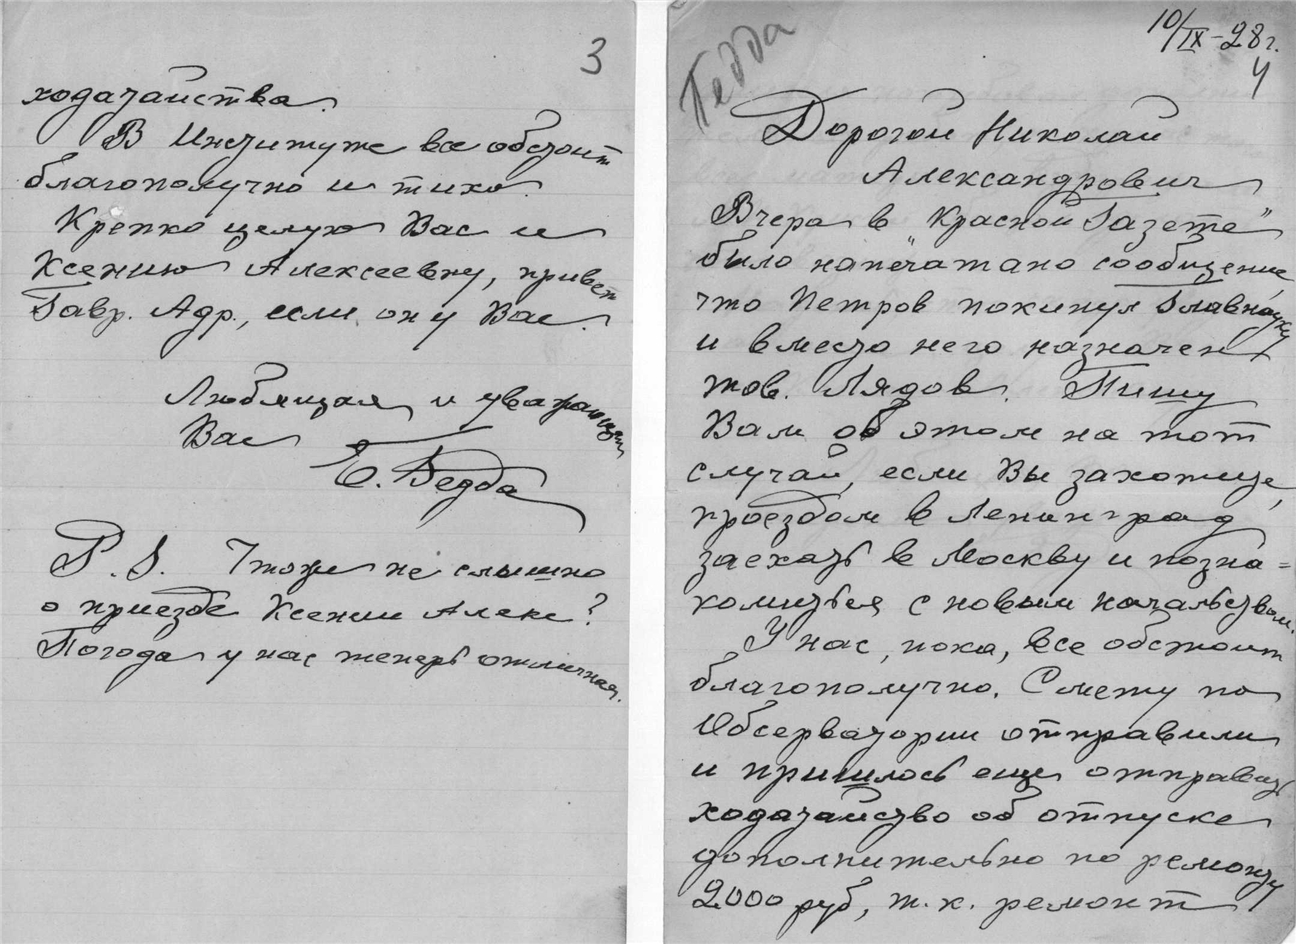 3
ходатайства.
В Институте все обстоит
благополучно и тихо.
Крепко целую Вас и
Ксению Алексеевну, привет
Гавр. Адр., если он у Вас.
Любящая и уважающая
Вас
Е. Бедда
P. S. Что же не слышно
о приезде Ксении Алекс?
Погода у нас теперь отличная.
10/IX-28 г.
4
Дорогой Николай
Александрович
Вчера в "Красной Газете"
было напечатано сообщение,
что Петров покинул Главнауку
и вместо него назначен
тов. Лядов. Пишу
Вам об этом на тот
случай, если Вы захотите,
проездом в Ленинград,
заехать в Москву и позна=
комиться с новым начальством.
У нас, пока, все обстоит
благополучно. Смету по
Обсерватории отправили
и пришлось еще отправить
ходатайство об отпуске
дополнительно по ремонту
2000 руб, т. к. ремонт